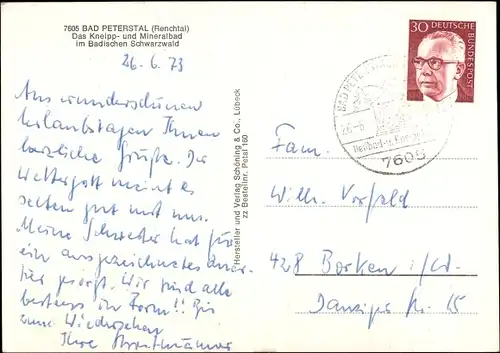 7605 BAD PETERSTAL (Renchtal)
Das Kneipp- und Mineralbad
im Badischen Schwarzwald
26.6.73
Aus wunderschönen
Urlaubstagen Ihnen
herzliche Grüße. Der
Wettergott meint es
selten gut mit uns.
Meine Schwester hat für
ein ausgezeichnetes Quar-
tier gesorgt. Wir sind alle
bestens in Form!! Bis
zum Wiedersehen
Ihre
Hersteller und Verlag Schöning & Co., Lübeck
zz Bestellnr. Petal 160
30 DEUTSCHE
BUNDESPOST
BAD PETERSTAL
26.-6
Heilbad-u.
7605
Fam.
Wilh. Vorfeld
428 Borken i/W.
Danziger Str. 15